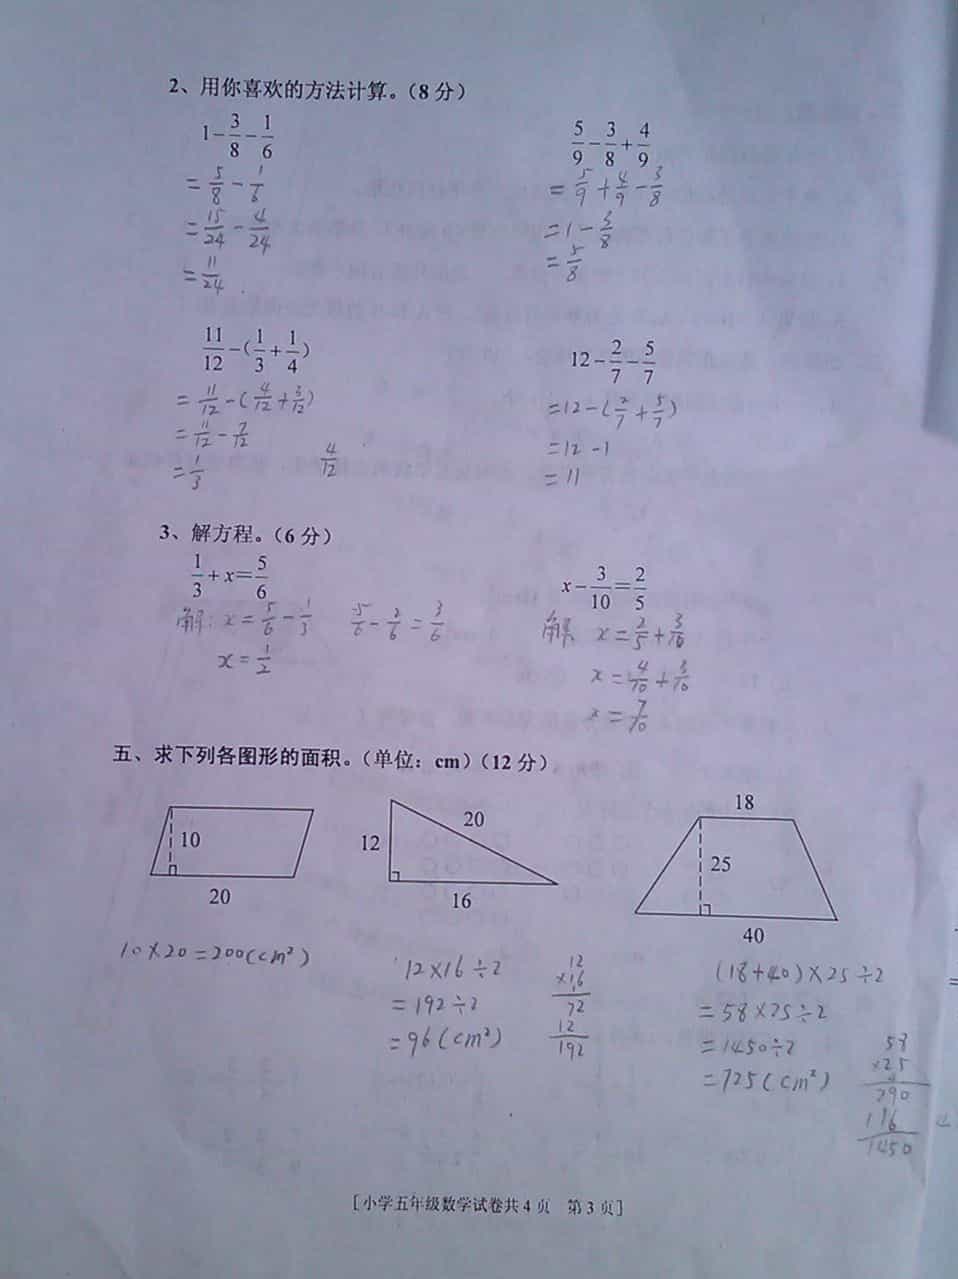 2、用你喜欢的方法计算。（8 分）
1 - 3/8 - 1/6
= 5/8 - 1/6
= 15/24 - 4/24
= 11/24
5/9 - 3/8 + 4/9
= 5/9 + 4/9 - 3/8
= 1 - 3/8
= 5/8
11/12 - (1/3 + 1/4)
= 11/12 - (4/12 + 3/12)
= 11/12 - 7/12
= 1/3
4/12
12 - 2/7 - 5/7
= 12 - (2/7 + 5/7)
= 12 - 1
= 11
3、解方程。（6 分）
1/3 + x = 5/6
解: x = 5/6 - 1/3
x = 1/2
5/6 - 2/6 = 3/6
x - 3/10 = 2/5
解: x = 2/5 + 3/10
x = 4/10 + 3/10
x = 7/10
五、求下列各图形的面积。（单位：cm）（12 分）
10
20
12
20
16
18
25
40
10×20=200(cm²)
12×16÷2
=192÷2
=96(cm²)
12
×16
72
12
192
(18+40)×25÷2
=58×25÷2
=1450÷2
=725(cm²)
58
×25
290
116
1450
[小学五年级数学试卷共 4 页 第 3 页]